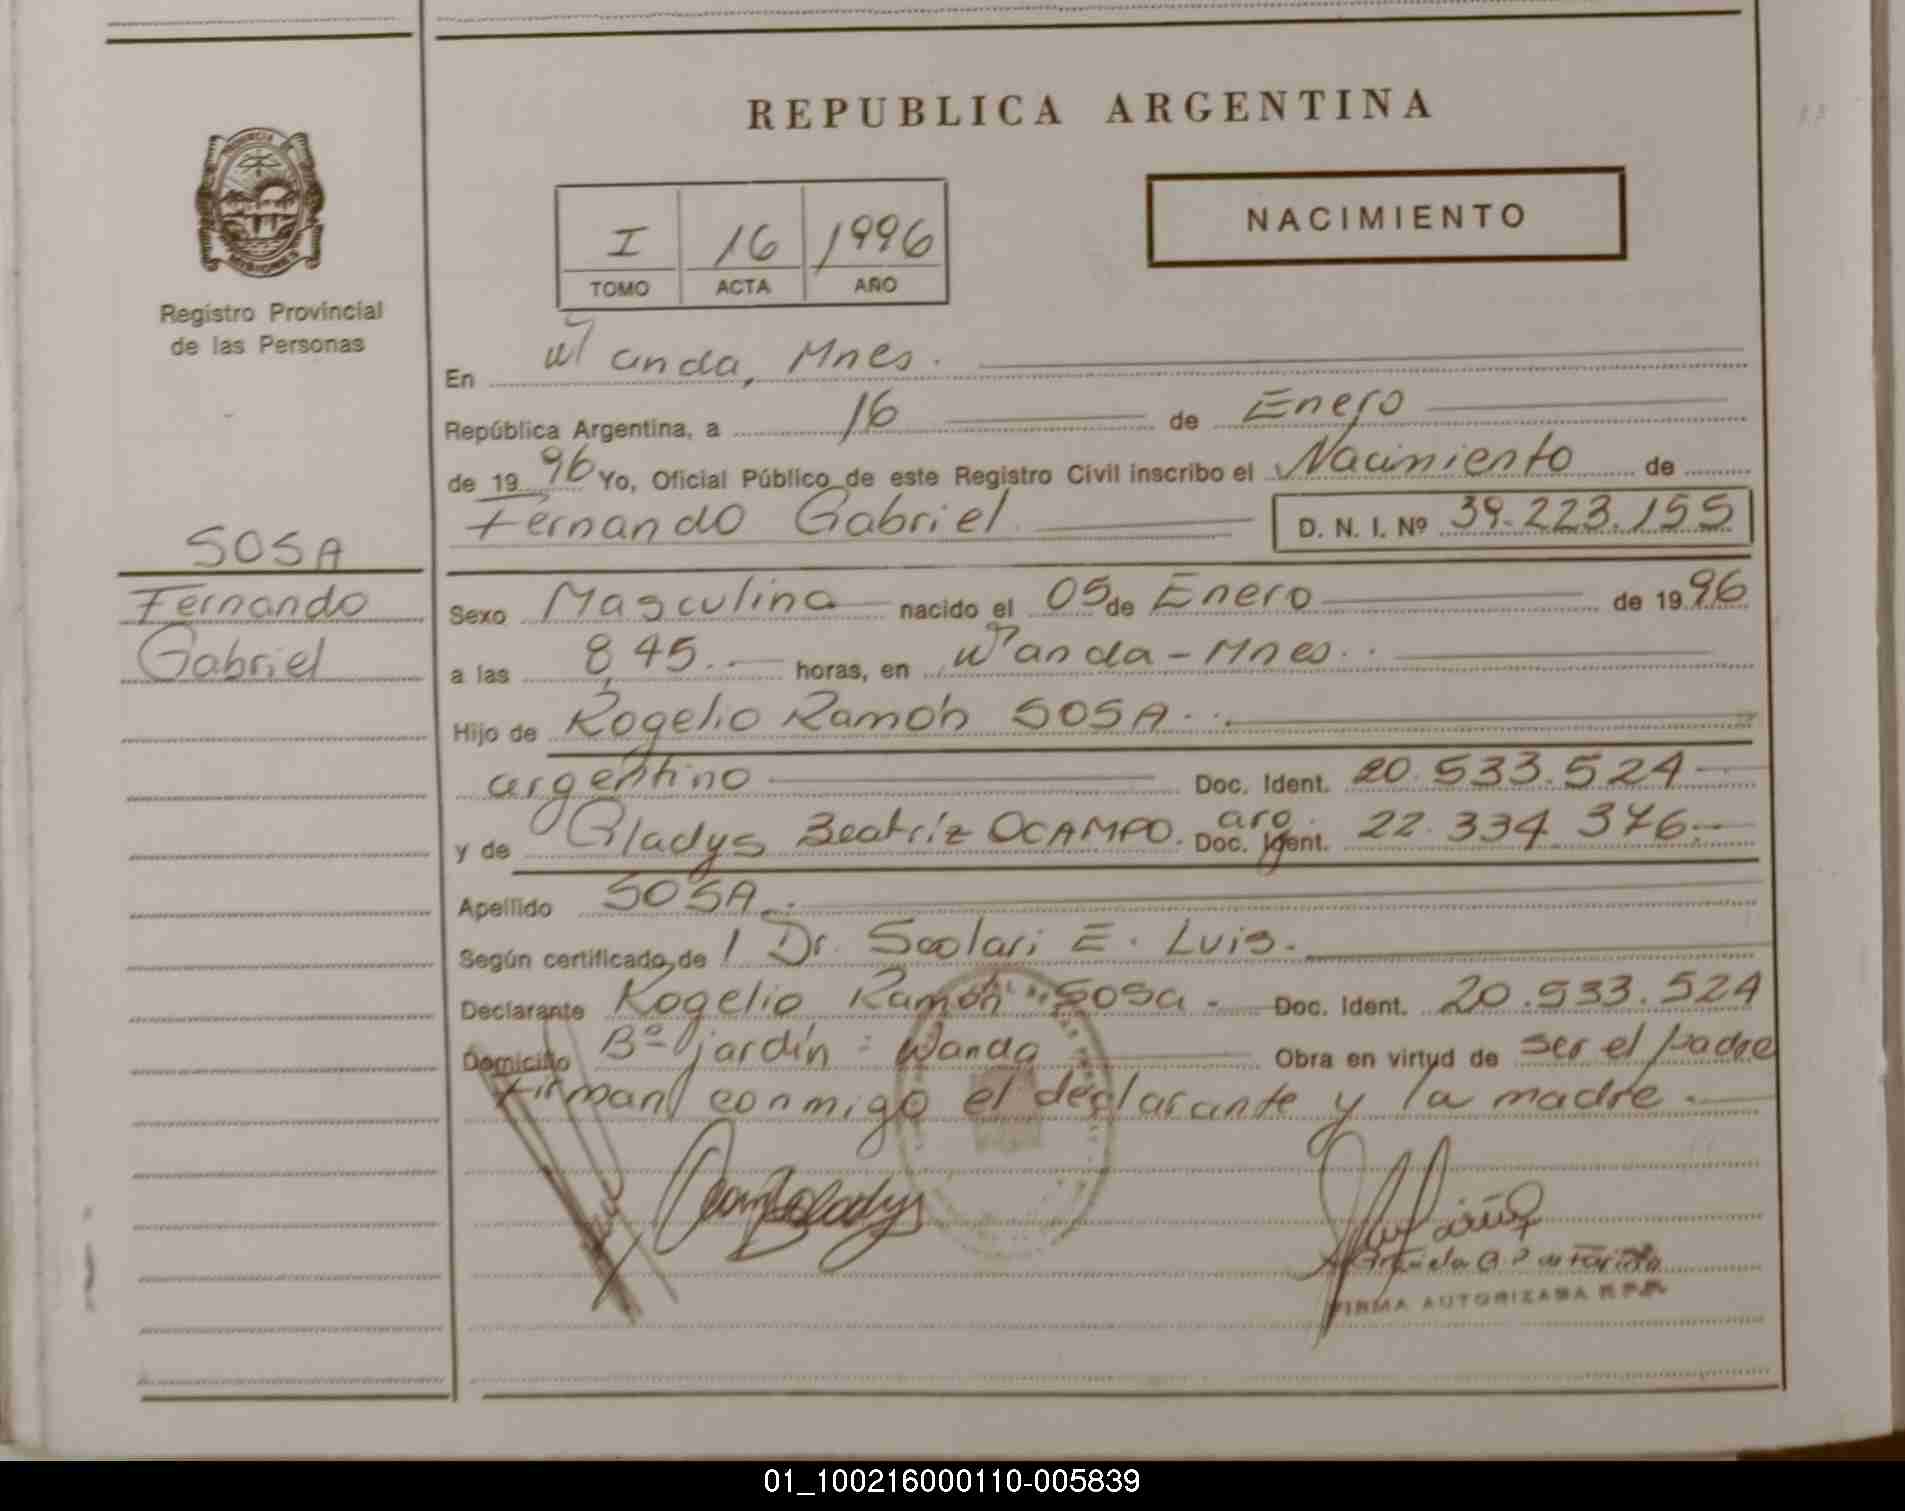 REPUBLICA ARGENTINA
NACIMIENTO
I 16 1996
TOMO ACTA AÑO
PROVINCIA
MISIONES
Registro Provincial
de las Personas
SOSA
Fernando
Gabriel
En Wanda, Mnes.
República Argentina, a 16 de Enero
de 1996 Yo, Oficial Público de este Registro Civil inscribo el Nacimiento de
Fernando Gabriel D. N. I. Nº 39.223.155
Sexo Masculino nacido el 05 de Enero de 1996
a las 8,45. horas, en Wanda - Mnes.
Hijo de Rogelio Ramón SOSA.
argentino Doc. Ident. 20.533.524
y de Gladys Beatriz OCAMPO. arg. Doc. Ident. 22.334.376.
Apellido SOSA.
Según certificado de Dr. Scolari E. Luis.
Declarante Rogelio Ramón Sosa. Doc. Ident. 20.533.524
Domicilio Bº jardín - Wanda Obra en virtud de ser el padre
Firman conmigo el declarante y la madre.
FIRMA AUTORIZADA R.P.P.
01_100216000110-005839